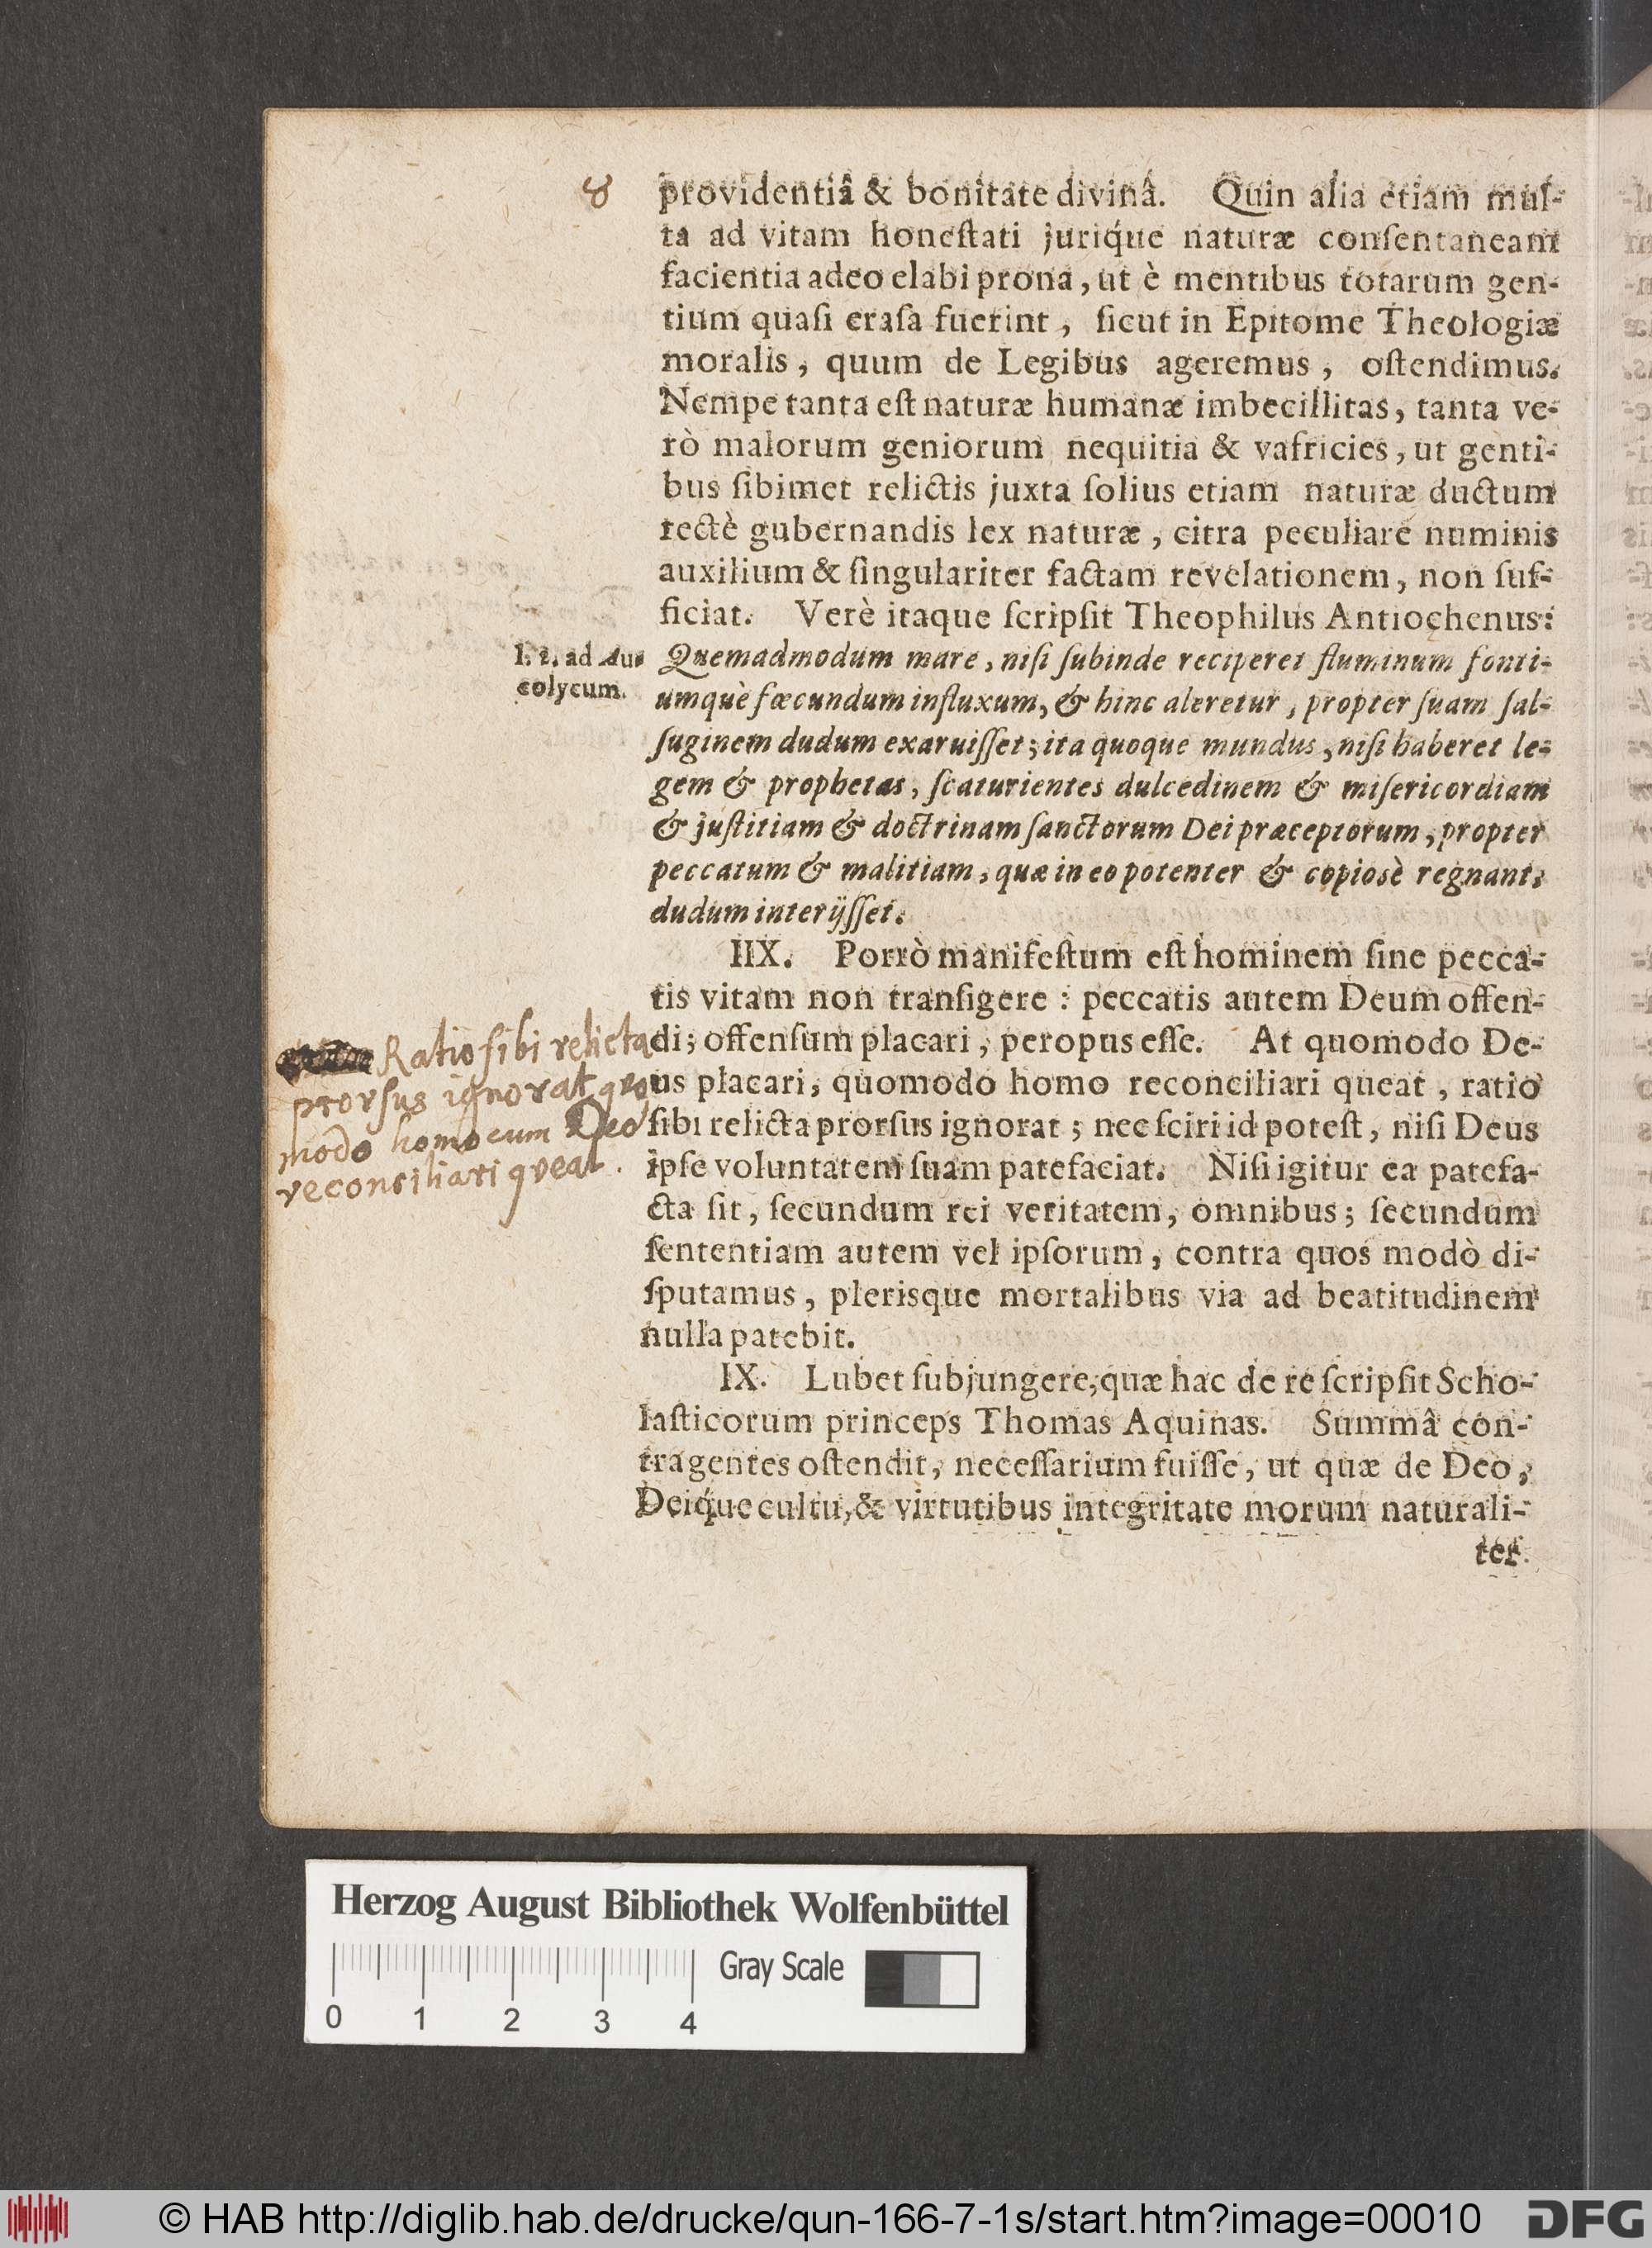 8
providentiâ & bonitate divinâ. Quin alia etiam mul-
ta ad vitam honeſtati juriq́ue naturæ conſentaneam
facientia adeo elabi prona, ut è mentibus totarum gen-
tium quaſi eraſa fuerint, ſicut in Epitome Theologiæ
moralis, quum de Legibus ageremus, oſtendimus.
Nempe tanta eſt naturæ humanæ imbecillitas, tanta ve-
rò malorum geniorum nequitia & vafricies, ut genti-
bus ſibimet relictis juxta ſolius etiam naturæ ductum
rectè gubernandis lex naturæ, citra peculiare numinis
auxilium & ſingulariter factam revelationem, non ſuf-
ficiat. Verè itaque ſcripſit Theophilus Antiochenus:
ad Au
colycum.
Quemadmodum mare, niſi ſubinde reciperet fluminum fonti-
umquè fœcundum influxum, & hinc aleretur, propter ſuam ſal-
ſuginem dudum exaruiſſet; ita quoque mundus, niſi haberet le-
gem & prophetas, ſcaturientes dulcedinem & miſericordiam
& juſtitiam & doctrinam ſanctorum Dei præceptorum, propter
peccatum & malitiam, quæ in eo potenter & copiosè regnant,
dudum interijſſet.
IIX. Porrò manifeſtum eſt hominem ſine pecca-
tis vitam non tranſigere: peccatis autem Deum offen-
di; offenſum placari, peropus eſſe. At quomodo De-
us placari, quomodo homo reconciliari queat, ratio
ſibi relicta prorſus ignorat; nec ſciri id poteſt, niſi Deus
ipſe voluntatem ſuam patefaciat. Niſi igitur ea patefa-
cta ſit, ſecundum rei veritatem, omnibus; ſecundum
ſententiam autem vel ipſorum, contra quos modò di-
ſputamus, plerisque mortalibus via ad beatitudinem
nulla patebit.
Ratio ſibi relicta
prorſus ignorat quo
modo homo cum Deo
reconciliari queat.
IX. Lubet ſubjungere, quæ hac de re ſcripſit Scho-
laſticorum princeps Thomas Aquinas. Summâ con-
tra gentes oſtendit, neceſſarium fuiſſe, ut quæ de Deo,
Deiq́ue cultu, & virtutibus integritate morum naturali-
ter
Herzog August Bibliothek Wolfenbüttel
Gray Scale
0 1 2 3 4
© HAB http://diglib.hab.de/drucke/qun-166-7-1s/start.htm?image=00010
DFG